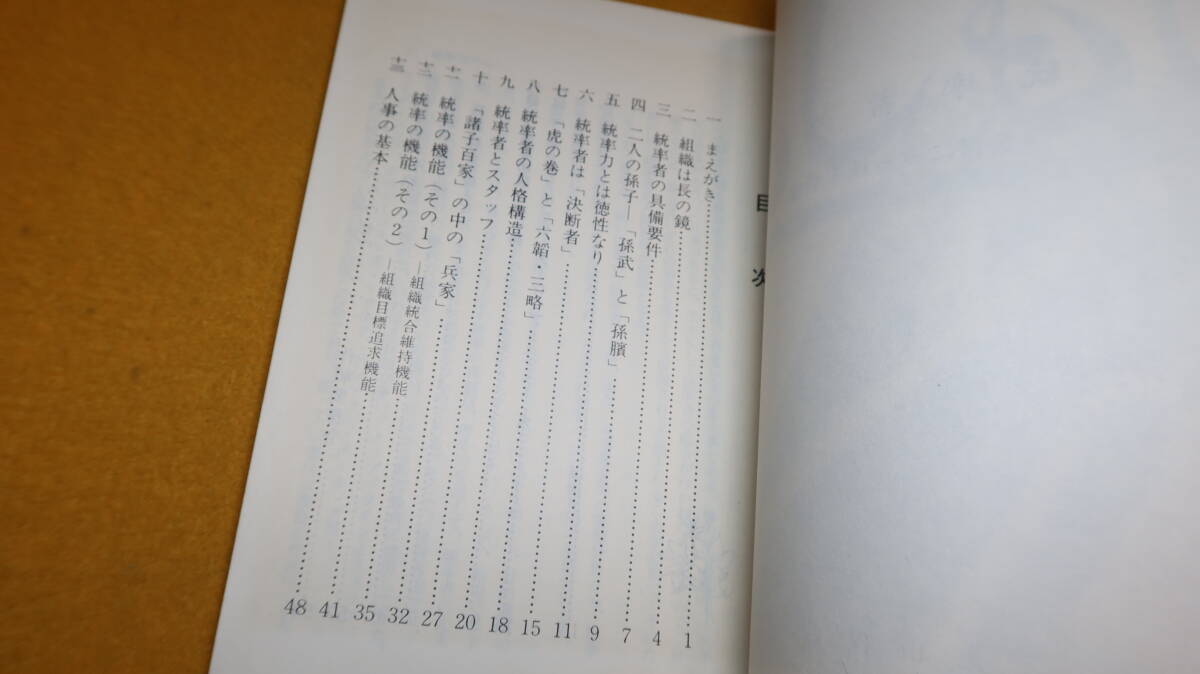 目次
一 まえがき……1
二 組織は長の鏡……4
三 統率者の具備要件……7
四 二人の孫子―「孫武」と「孫臏」……9
五 統率力とは徳性なり……11
六 統率者は「決断者」……15
七 「虎の巻」と「六韜・三略」……18
八 統率者の人格構造……20
九 統率者とスタッフ……27
十 「諸子百家」の中の「兵家」……32
十一 統率の機能(その1)―組織統合維持機能……35
十二 統率の機能(その2)―組織目標追求機能……41
十三 人事の基本……48